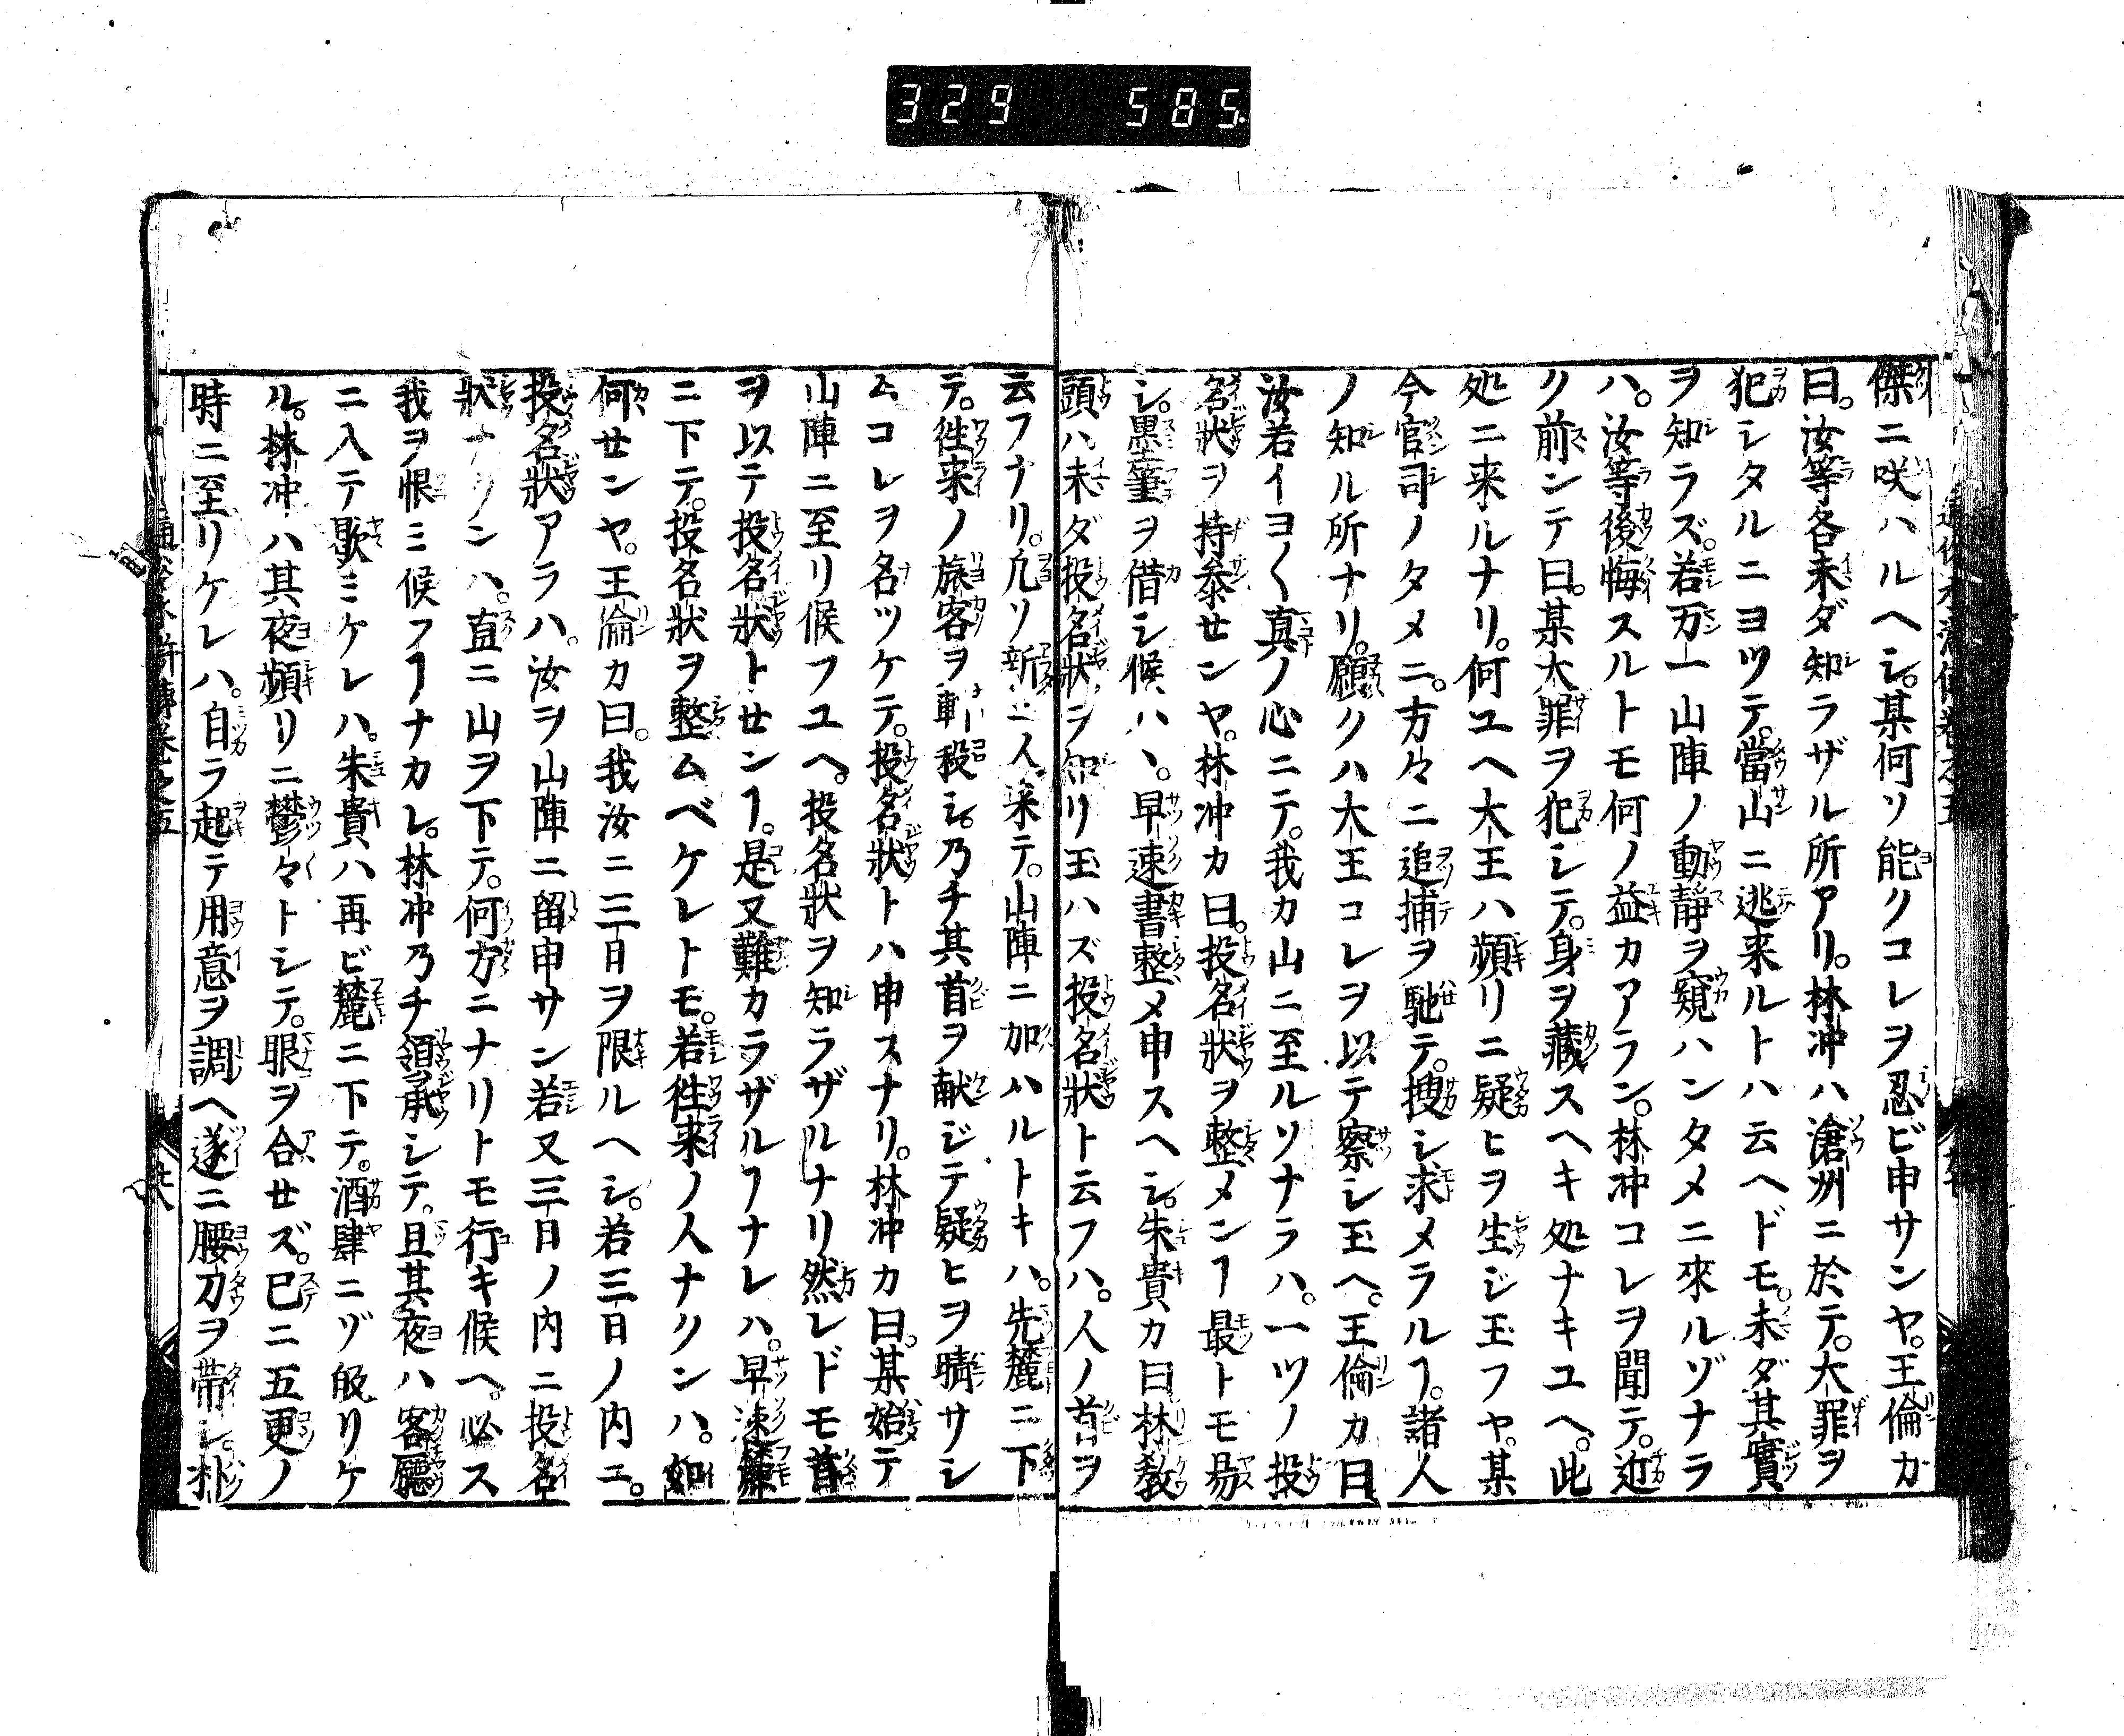 329 585
傑ニ咲ハルヘシ。某何ソ能クコレヲ忍ビ申サンヤ。王倫カ
曰。汝等各未ダ知ラザル所アリ。林冲ハ滄州ニ於テ。大罪ヲ
犯シタルニヨツテ。當山ニ逃来ルトハ云ヘドモ。未ダ其實
ヲ知ラズ。若万一山陣ノ動靜ヲ窺ハンタメニ來ルゾナラ
ハ。汝等後悔スルトモ何ノ益カアラン。林冲コレヲ聞テ。近
ク前ンテ曰。某大罪ヲ犯シテ。身ヲ藏スヘキ処ナキユヘ。此
処ニ来ルナリ。何ユヘ大王ハ頻リニ疑ヒヲ生ジ玉フヤ。某
今官司ノタメニ。方々ニ追捕ヲ馳テ。捜シ求メラルヿ。諸人
ノ知ル所ナリ。願クハ大王コレヲ以テ察シ玉ヘ。王倫カ曰
汝若イヨ〱真ノ心ニテ。我カ山ニ至ルソナラハ。一ツノ投
名狀ヲ持参センヤ。林冲カ曰。投名狀ヲ整メンヿ最トモ易
シ。墨筆ヲ借シ候ハヽ。早速書整メ申スヘシ。朱貴カ曰林教
頭ハ未ダ投名狀ヲ知リ玉ハズ投名狀ト云フハ。人ノ首ヲ
云フナリ。凢ソ新ニ人來テ。山陣ニ加ハルトキハ。先麓ニ下
テ。往来ノ旅客ヲ斬殺シ。乃チ其首ヲ献ジテ疑ヒヲ晴サシ
ムコレヲ名ツケテ。投名狀トハ申スナリ。林冲カ曰。某始テ
山陣ニ至リ候フユヘ。投名狀ヲ知ラザルナリ然レドモ首
ヲ以テ投名狀トセンヿ。是又難カラザルヿナレハ。早速麓
ニ下テ。投名狀ヲ整ムベケレトモ。若往来ノ人ナクンハ。如
何センヤ。王倫カ曰。我汝ニ三日ヲ限ルヘシ。若三日ノ内ニ。
投名狀アラハ。汝ヲ山陣ニ留申サン若又三日ノ内ニ投名
狀ナクンハ。直ニ山ヲ下テ。何方ニナリトモ行キ候ヘ。必ス
我ヲ恨ミ候フヿナカレ。林冲乃チ領承シテ。且其夜ハ客廳
ニ入テ歇ミケレハ。朱貴ハ再ビ麓ニ下テ。酒肆ニゾ皈リケ
ル。林冲ハ其夜頻リニ鬱々トシテ。眼ヲ合セズ。已ニ五更ノ
時ニ至リケレハ。自ラ起テ用意ヲ調ヘ遂ニ腰刀ヲ帯シ。朴